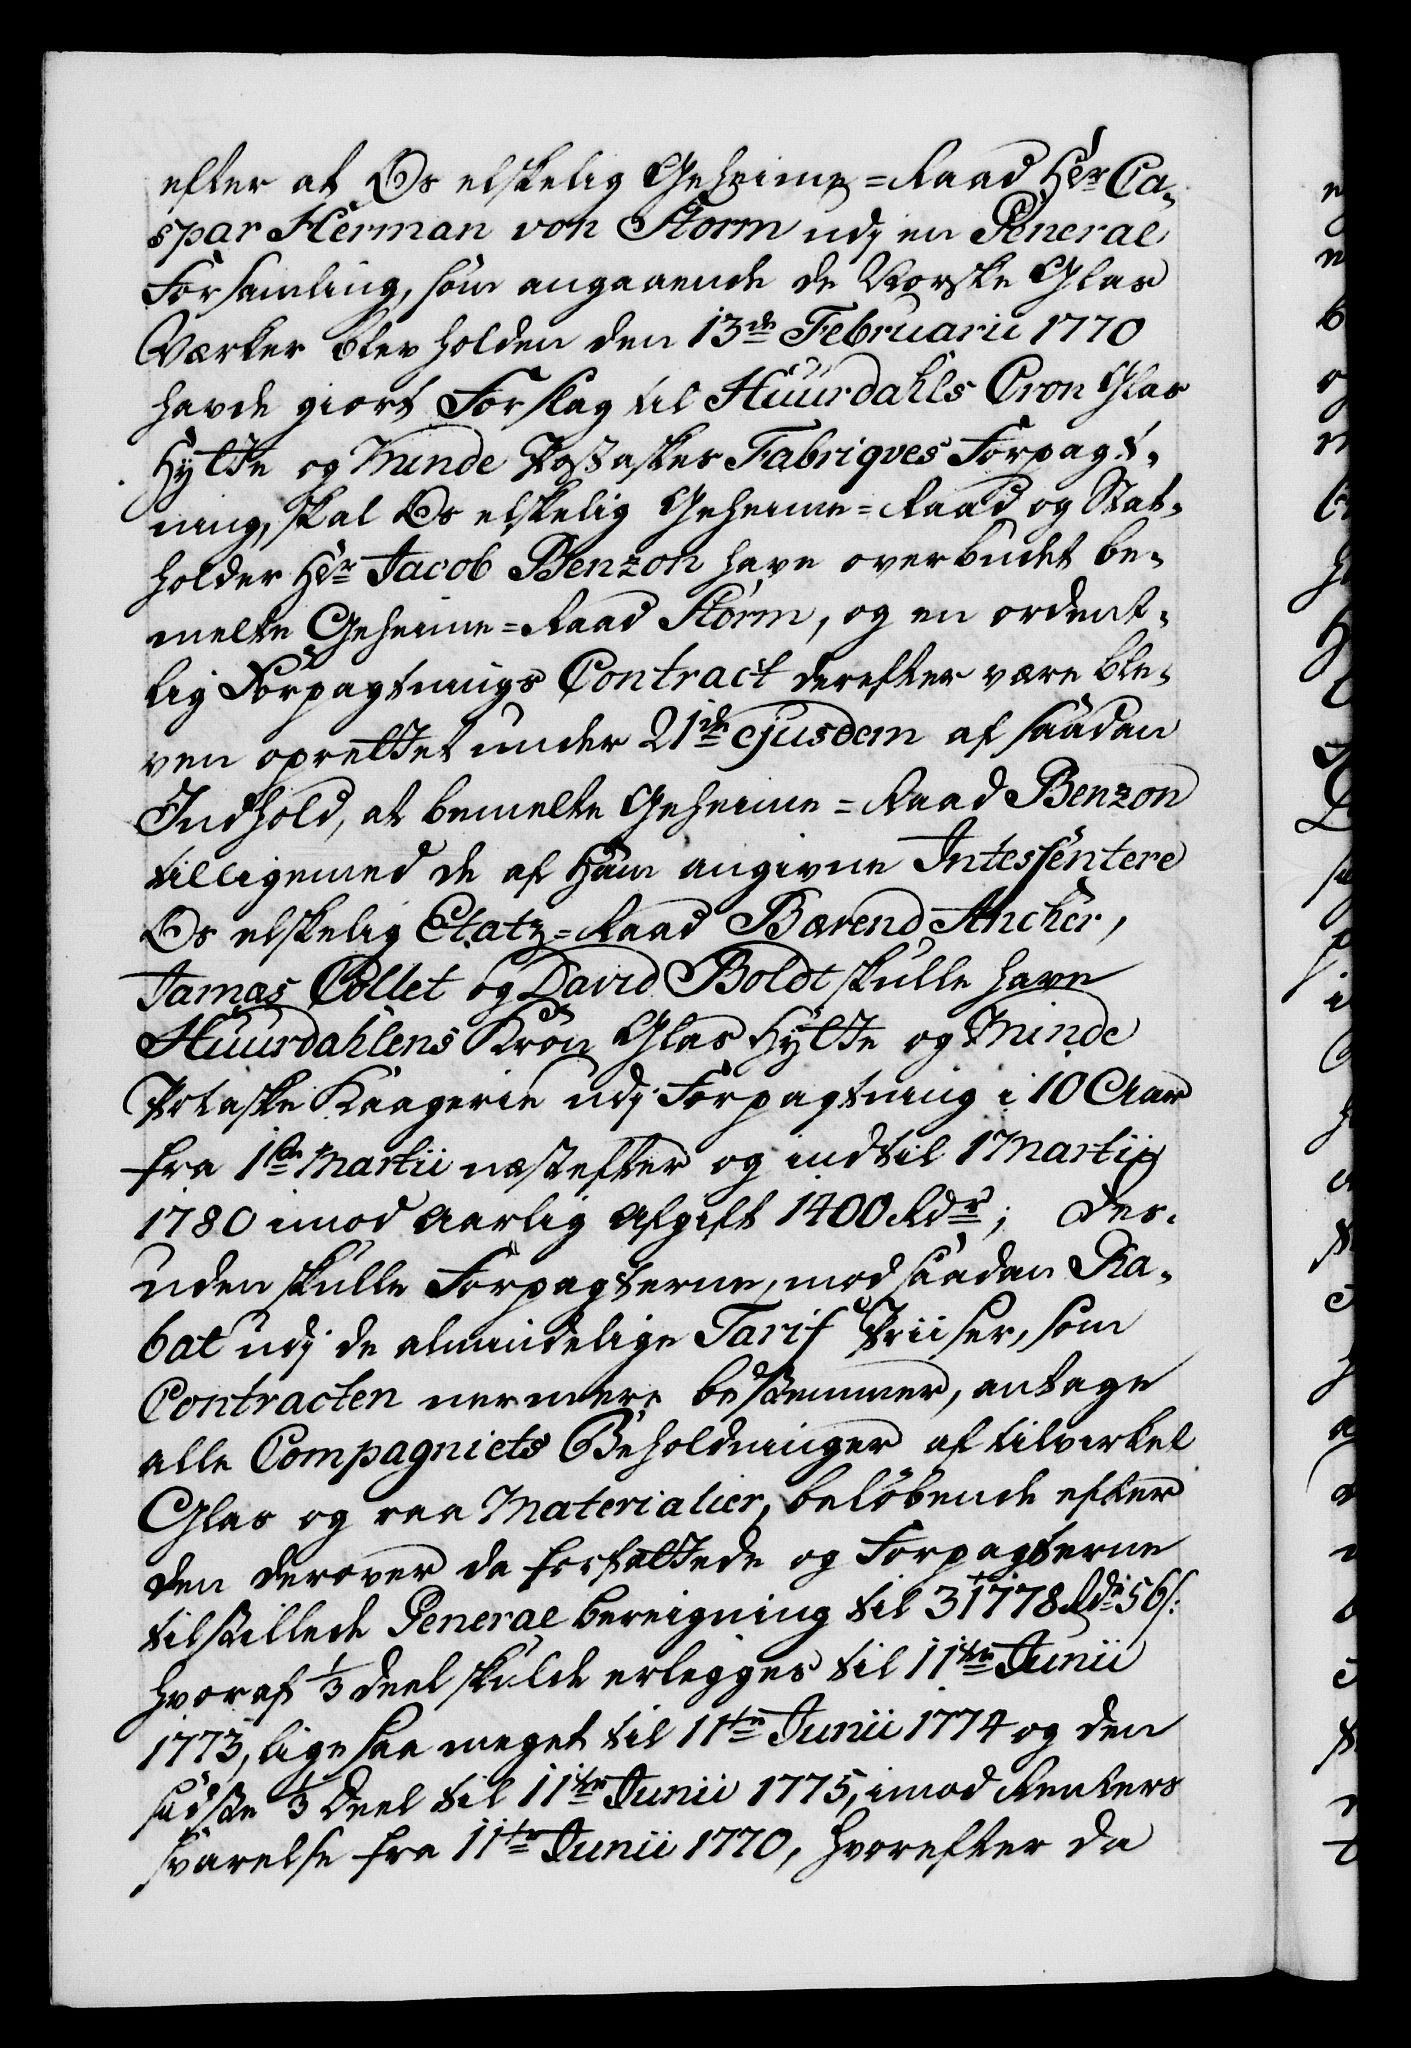 efter at Os elskelig Geheime=Raad Hr Ca-
spar Herman von Storm udj en General
Forsamling, som angaaende de Norske Glas
Værker blev holden den 13de Februarii 1770
havde giort Forslag til Huurdahls Cron Glas
Hytte og Minde Potaskes Fabriqves Forpagt-
ning, skal Os elskelig Geheime=Raad og Stat-
holder Hr Jacob Benzon have overbudet be-
melte Geheime=Raad Storm, og en ordent-
lig Forpagtnings Contract derefter være ble-
ven oprettet under 21de ejusdem af saadan
Indhold, at bemelte Geheime=Raad Benzon
tilligemed de af ham angivne Intessentere
Os elskelig Etatz=Raad Bærend Ancher,
Jamas Collet og David Boldt skulle have
Huurdahlens Kron Glas Hytte og Minde
Potaske Kaagerie udj Forpagtning i 10 Aar
fra 1ste Martii næstefter og indtil 1 Martii
1780 imod Aarlig Afgift 1400 Rdr; Des-
uden skulle Forpagterne, mod saadan Ra-
bat udj de almindelige Tarif Priiser, som
Contracten nermere bestemmer, antage
alle Compagniets Beholdninger af tilvirket
Glas og raa Materialier, beløbende efter
den derover da forfattede og Forpagterne
tilstillede General bereigning til 31778 Rdr 56 s:
hvoraf 1/3 deel skulde erlegges til 11te Junii
1773, lige saa meget til 11te Junii 1774 og den
sidste 1/3 Deel til 11te Junii 1775, imod Renters
svarelse fra 11te Junii 1770, hvorefter da